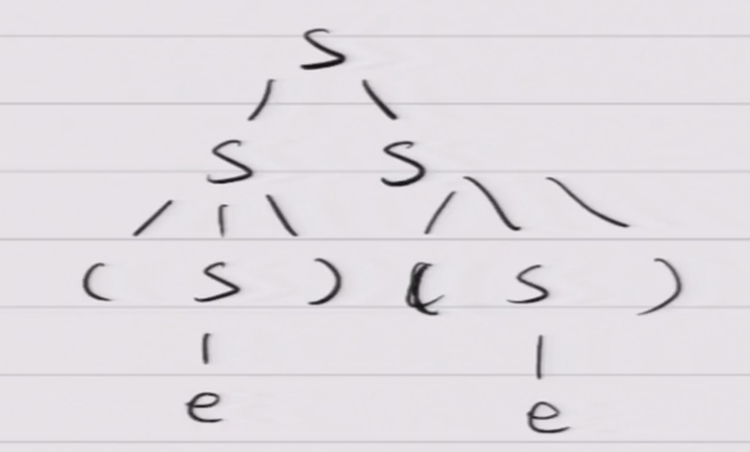 S
S S
( S ) ( S )
e e